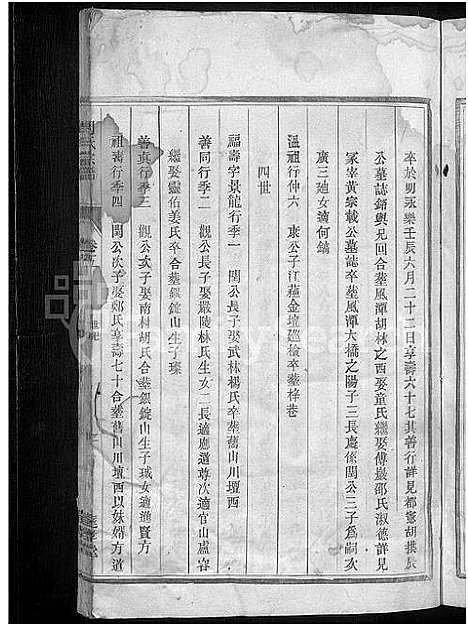 卒於明永樂壬辰六月二十二日享壽六十七其善行詳見都憲胡拱辰
公墓誌銘與兄回合塟風潭胡林之西娶童氏繼娶傅巖邵氏淑德詳見
冢宰黃宗載公墓誌卒塟風潭大橋之陽子三長慶係閏公三子為嗣次
廣三廸女適何鎬
溫祖行仲六 康公子江蘊金壇巡檢卒塟梓巷
四世
福壽字景龍行季一 閏公長子娶武林楊氏卒塟舊山川壇西
善同行季二 觀公長子娶嚴陵林氏生女二長適應進尊次適官山盧容
善真行季三 觀公次子娶南林胡氏合塟銀錠山生子琙女適進賢方
繼娶靈佑姜氏卒合塟銀錠山生子璨
祖壽行季四 閏公次子娶鄭氏享壽七十合塟舊山川壇西以妹婿方道